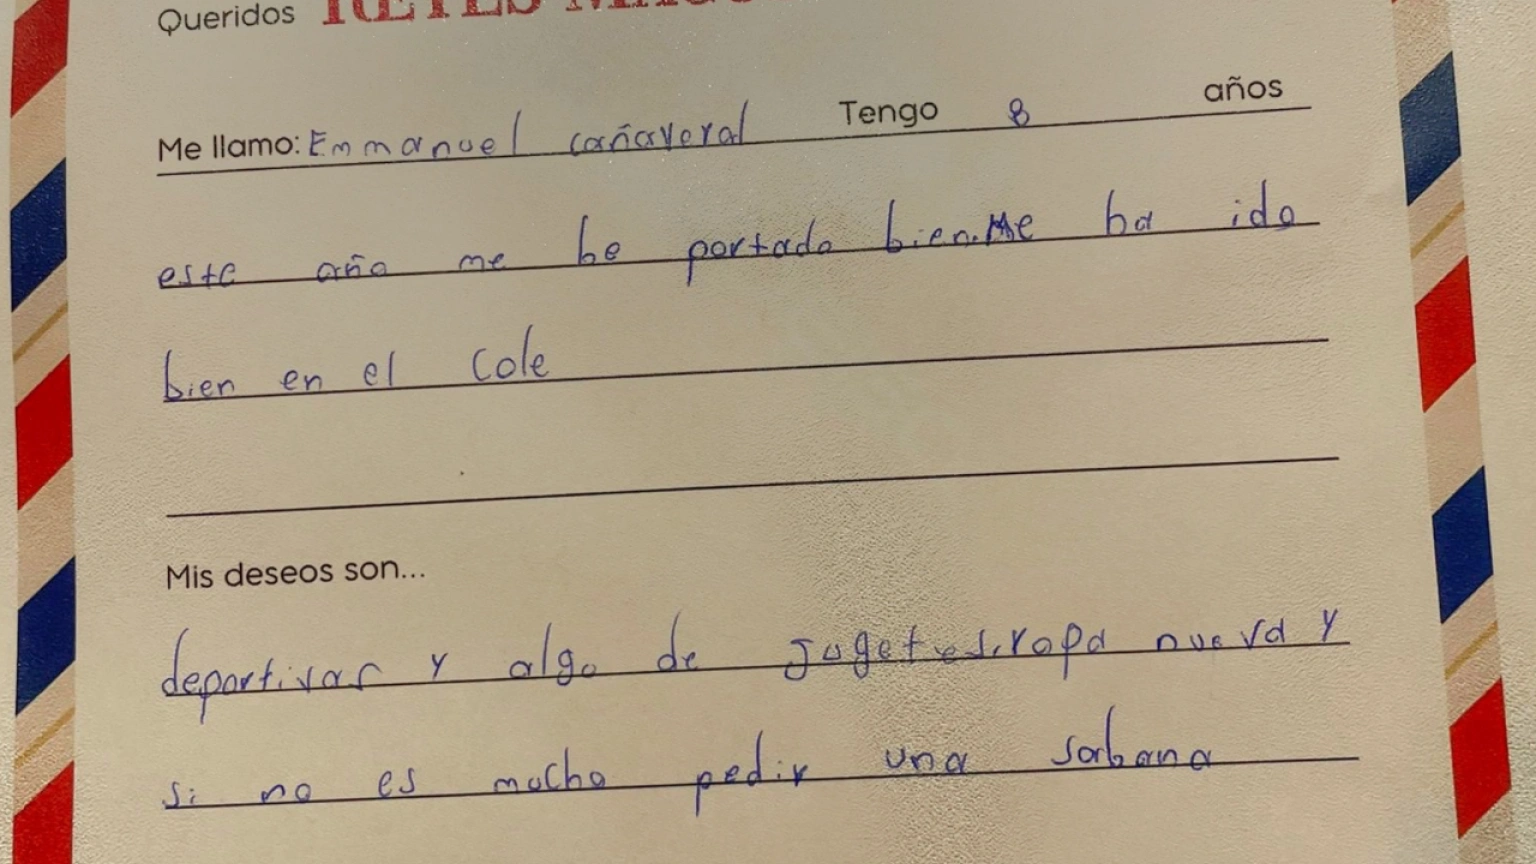 Queridos REYES MAGOS
Me llamo: Emmanuel cañaveral Tengo 8 años
este año me he portado bien. Me ha ido
bien en el cole
Mis deseos son...
deportivas y algo de jugetes, ropa nueva y
si no es mucho pedir una sabana